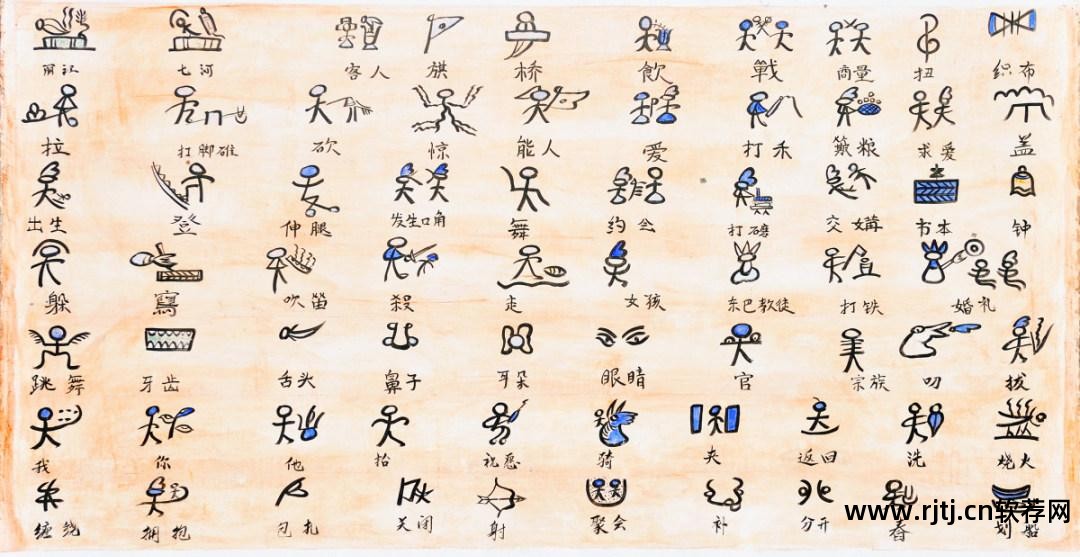 丽江 七河 客人 旗 桥 飲 戰 商量 扭 织布
拉 打脚碓 砍 惊 能人 爱 打禾 簸粮 求爱 盖
出生 登 伸腿 发生口角 舞 约会 打碲 交媾 书本 钟
躲 寫 吹笛 殺 走 女孩 东巴教徒 打铁 婚礼
跳舞 牙齿 舌头 鼻子 耳朵 眼睛 官 宗族 叨 拔
我 你 他 抬 祝愿 骑 夹 返回 洗 烧火
缠绕 拥抱 包扎 关闭 射 聚会 补 分开 春 划船
www.rjtj.cn软荐网